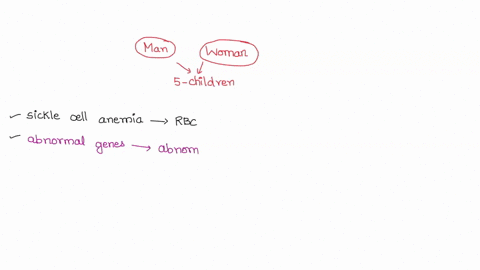 Man Woman
5-children
✓ sickle cell anemia → RBC
✓ abnormal genes → abnom